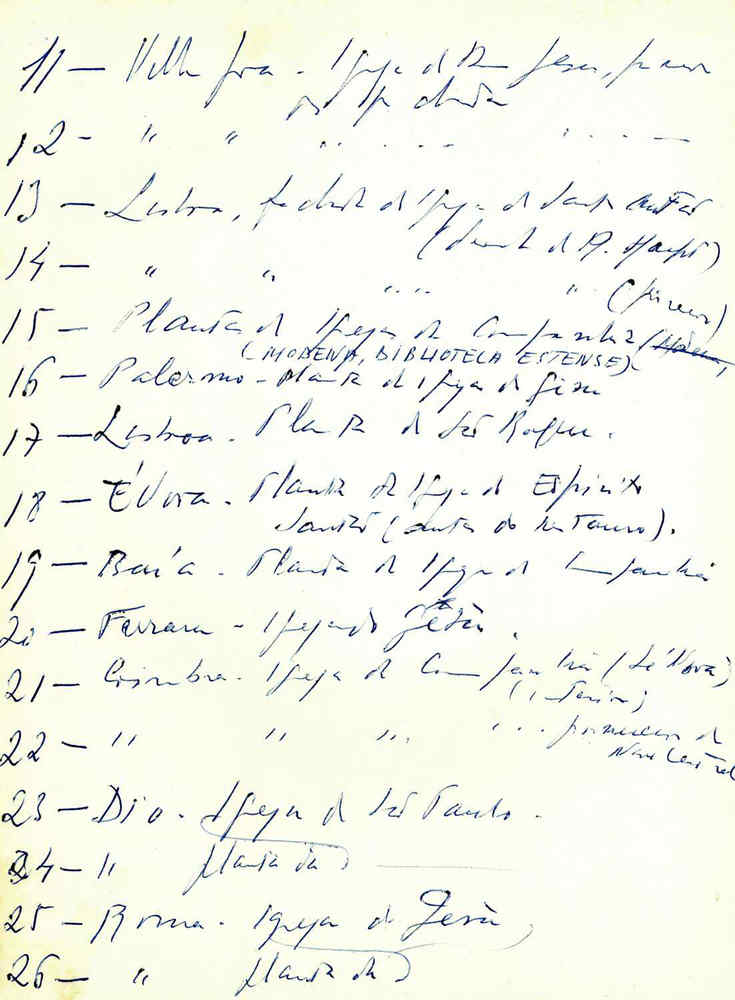 11 — Villa
12 - " "
13 — Lisboa, fachada da Igreja de Santo Antão
14 — " " " "
15 — Planta da Igreja da Companhia
(MODENA, BIBLIOTECA ESTENSE)
16 — Palermo - Planta da Igreja do Gesu
17 — Lisboa. Planta de São Roque.
18 — Évora. Planta da Igreja do Espírito
Santo (antes do restauro).
19 — Baía. Planta da Igreja da Companhia
20 — Ferrara - Igreja do Gesù.
21 — Coimbra. Igreja da Companhia (Sé Nova)
(interior)
22 — " " " "
Nave Central
23 — Dio. Igreja de São Paulo.
24 — " planta da
25 — Roma. Igreja do Gesù
26 — " planta da